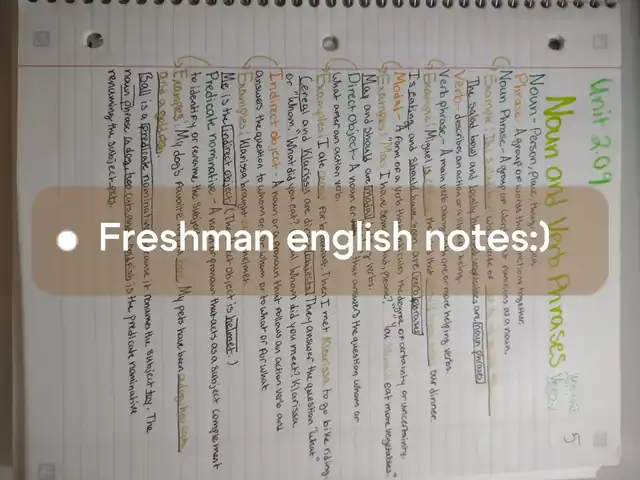 Freshman english notes:)
Unit 2.09
Noun and Verb Phrases
5
Noun - Person, place, thing,
Phrase - A group of words that functions together.
Noun Phrase - A group of words that functions as a noun.
Example:
The salad bowl and locally vegetables are noun phrases
Verb - describes an action or a state of being.
Verb phrase - A main verb and one or more helping verbs.
Example: Miguel is that our dinner.
Is eating and should have are verb phrases
Modal - A form of a verb that the degree of certainty or uncertainty
Examples: "May I have some please?" "You should eat more vegetables."
May and should are modal verbs.
Direct object - A noun or that answers the question whom or
what after an action verb.
Examples: I ate for breakfast. Then I met Klarissa to go bike riding.
Cereal and Klarissa are direct objects. They answer the question "What"
or "Whom". What did you eat? Cereal. Whom did you meet? Klarissa
Indirect object - A noun or a pronoun that follows an action verb and
answers the question to whom or for whom or to what or for what
Example: Klarissa brought me helmet.
Me is the indirect object. (The direct object is helmet.)
Predicate nominative - A noun or pronoun that acts as a subject complement
to identify or rename the subject
Examples: My dog's favorite ball. My pets have been a dog, two cats,
and a goldfish.
Ball is a predicate nominative because it renames the subject toy. The
noun phrase a dog, two cats, and a goldfish is the predicate nominative
renaming the subject pets